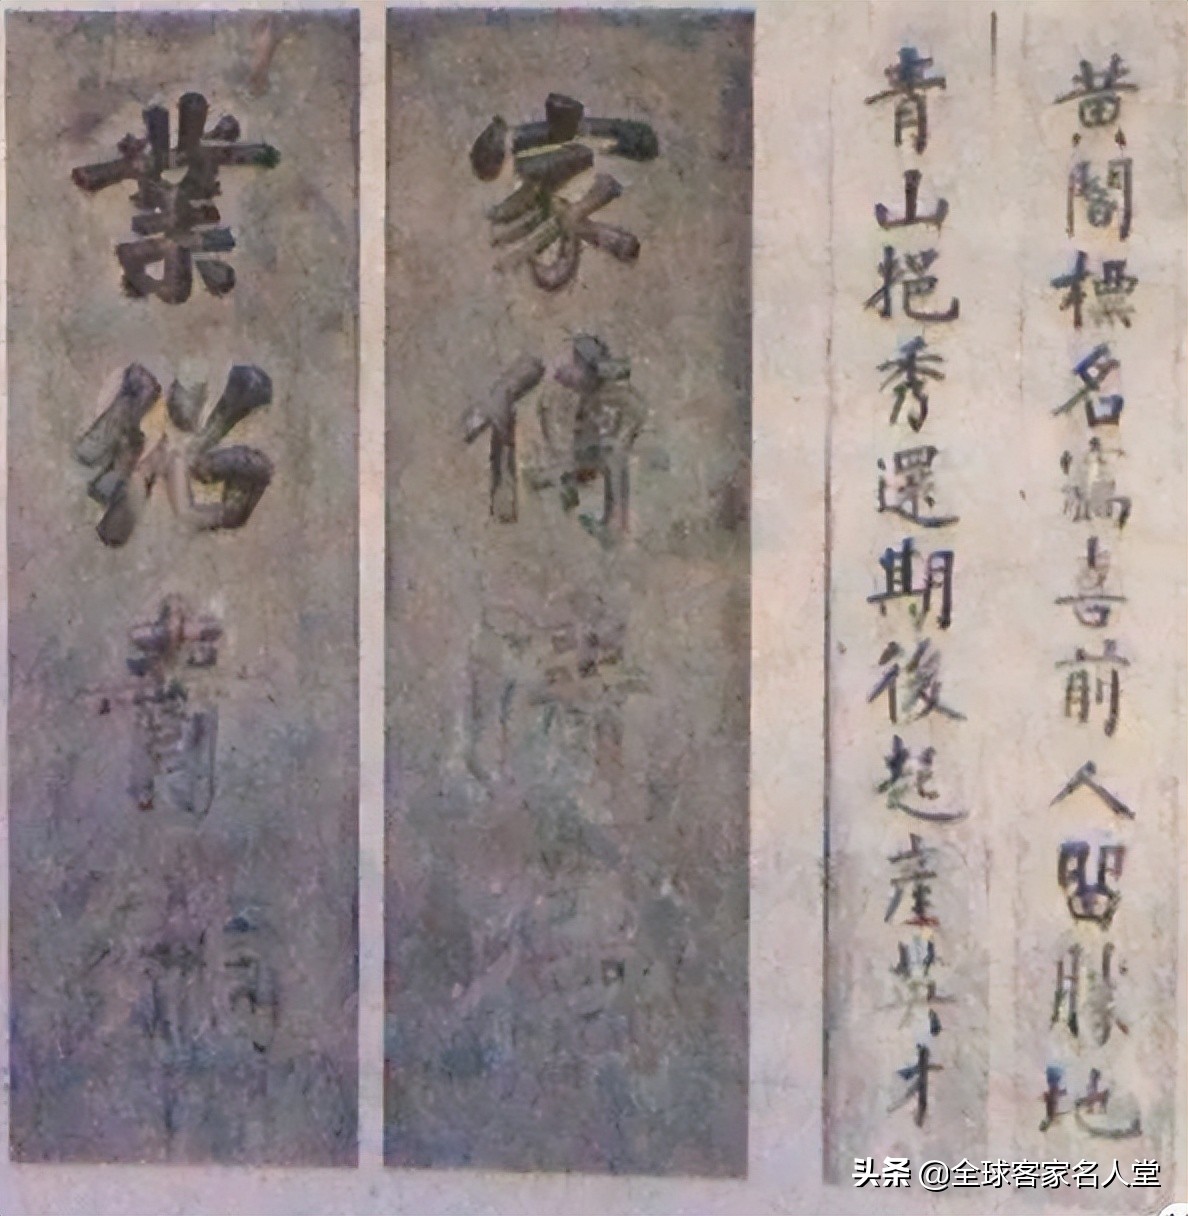 黄閣標名喜前人留勝地
青山挹秀還期後起產英才
家傳清
業紹青
头条 @全球客家名人堂